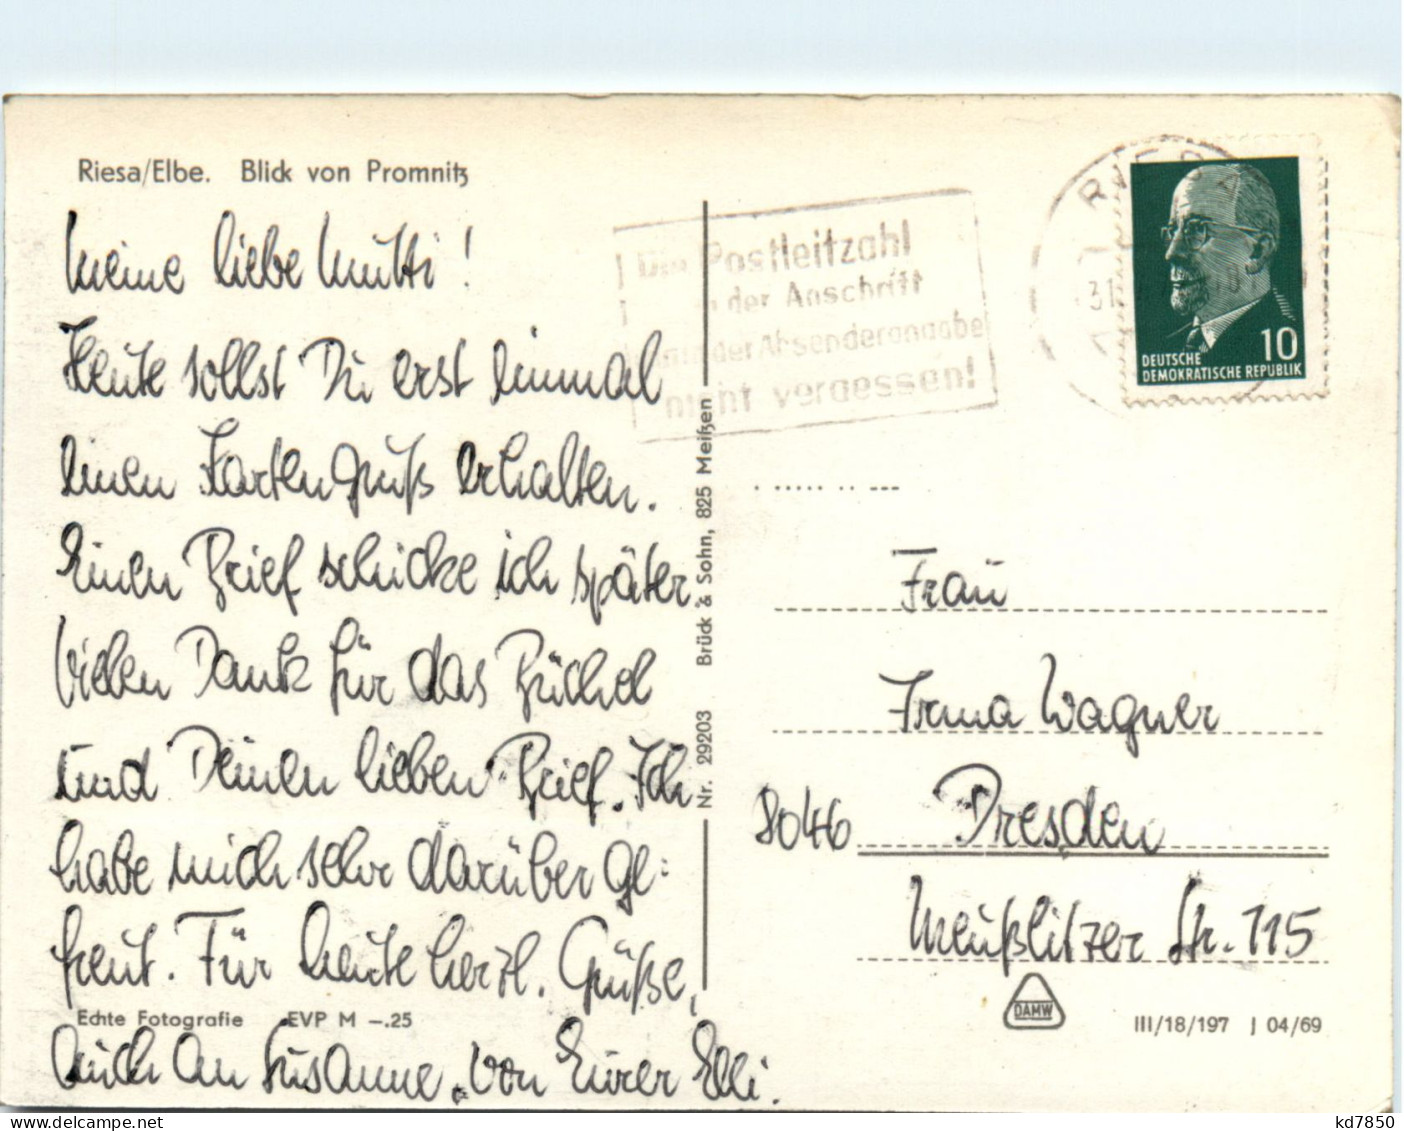 Riesa/Elbe. Blick von Promnitz
Meine liebe Mutti!
Heute sollst Du erst einmal
einen Kartengruß erhalten.
Einen Brief schicke ich später
Vielen Dank für das Büchel
und Deinen lieben Brief. Ich
habe mich sehr darüber ge:
freut. Für heute herzl. Grüße,
auch an Susanne, von Eurer Elli.
Echte Fotografie EVP M –.25
Nr. 29203 Brück & Sohn, 825 Meißen
Die Postleitzahl
in der Anschrift
und in der Absenderangabe
nicht vergessen!
RIESA
31
10
DEUTSCHE
DEMOKRATISCHE REPUBLIK
Frau
Irma Wagner
8046 Dresden
Meußlitzer Str. 115
DAMW
III/18/197 J 04/69
kd7850